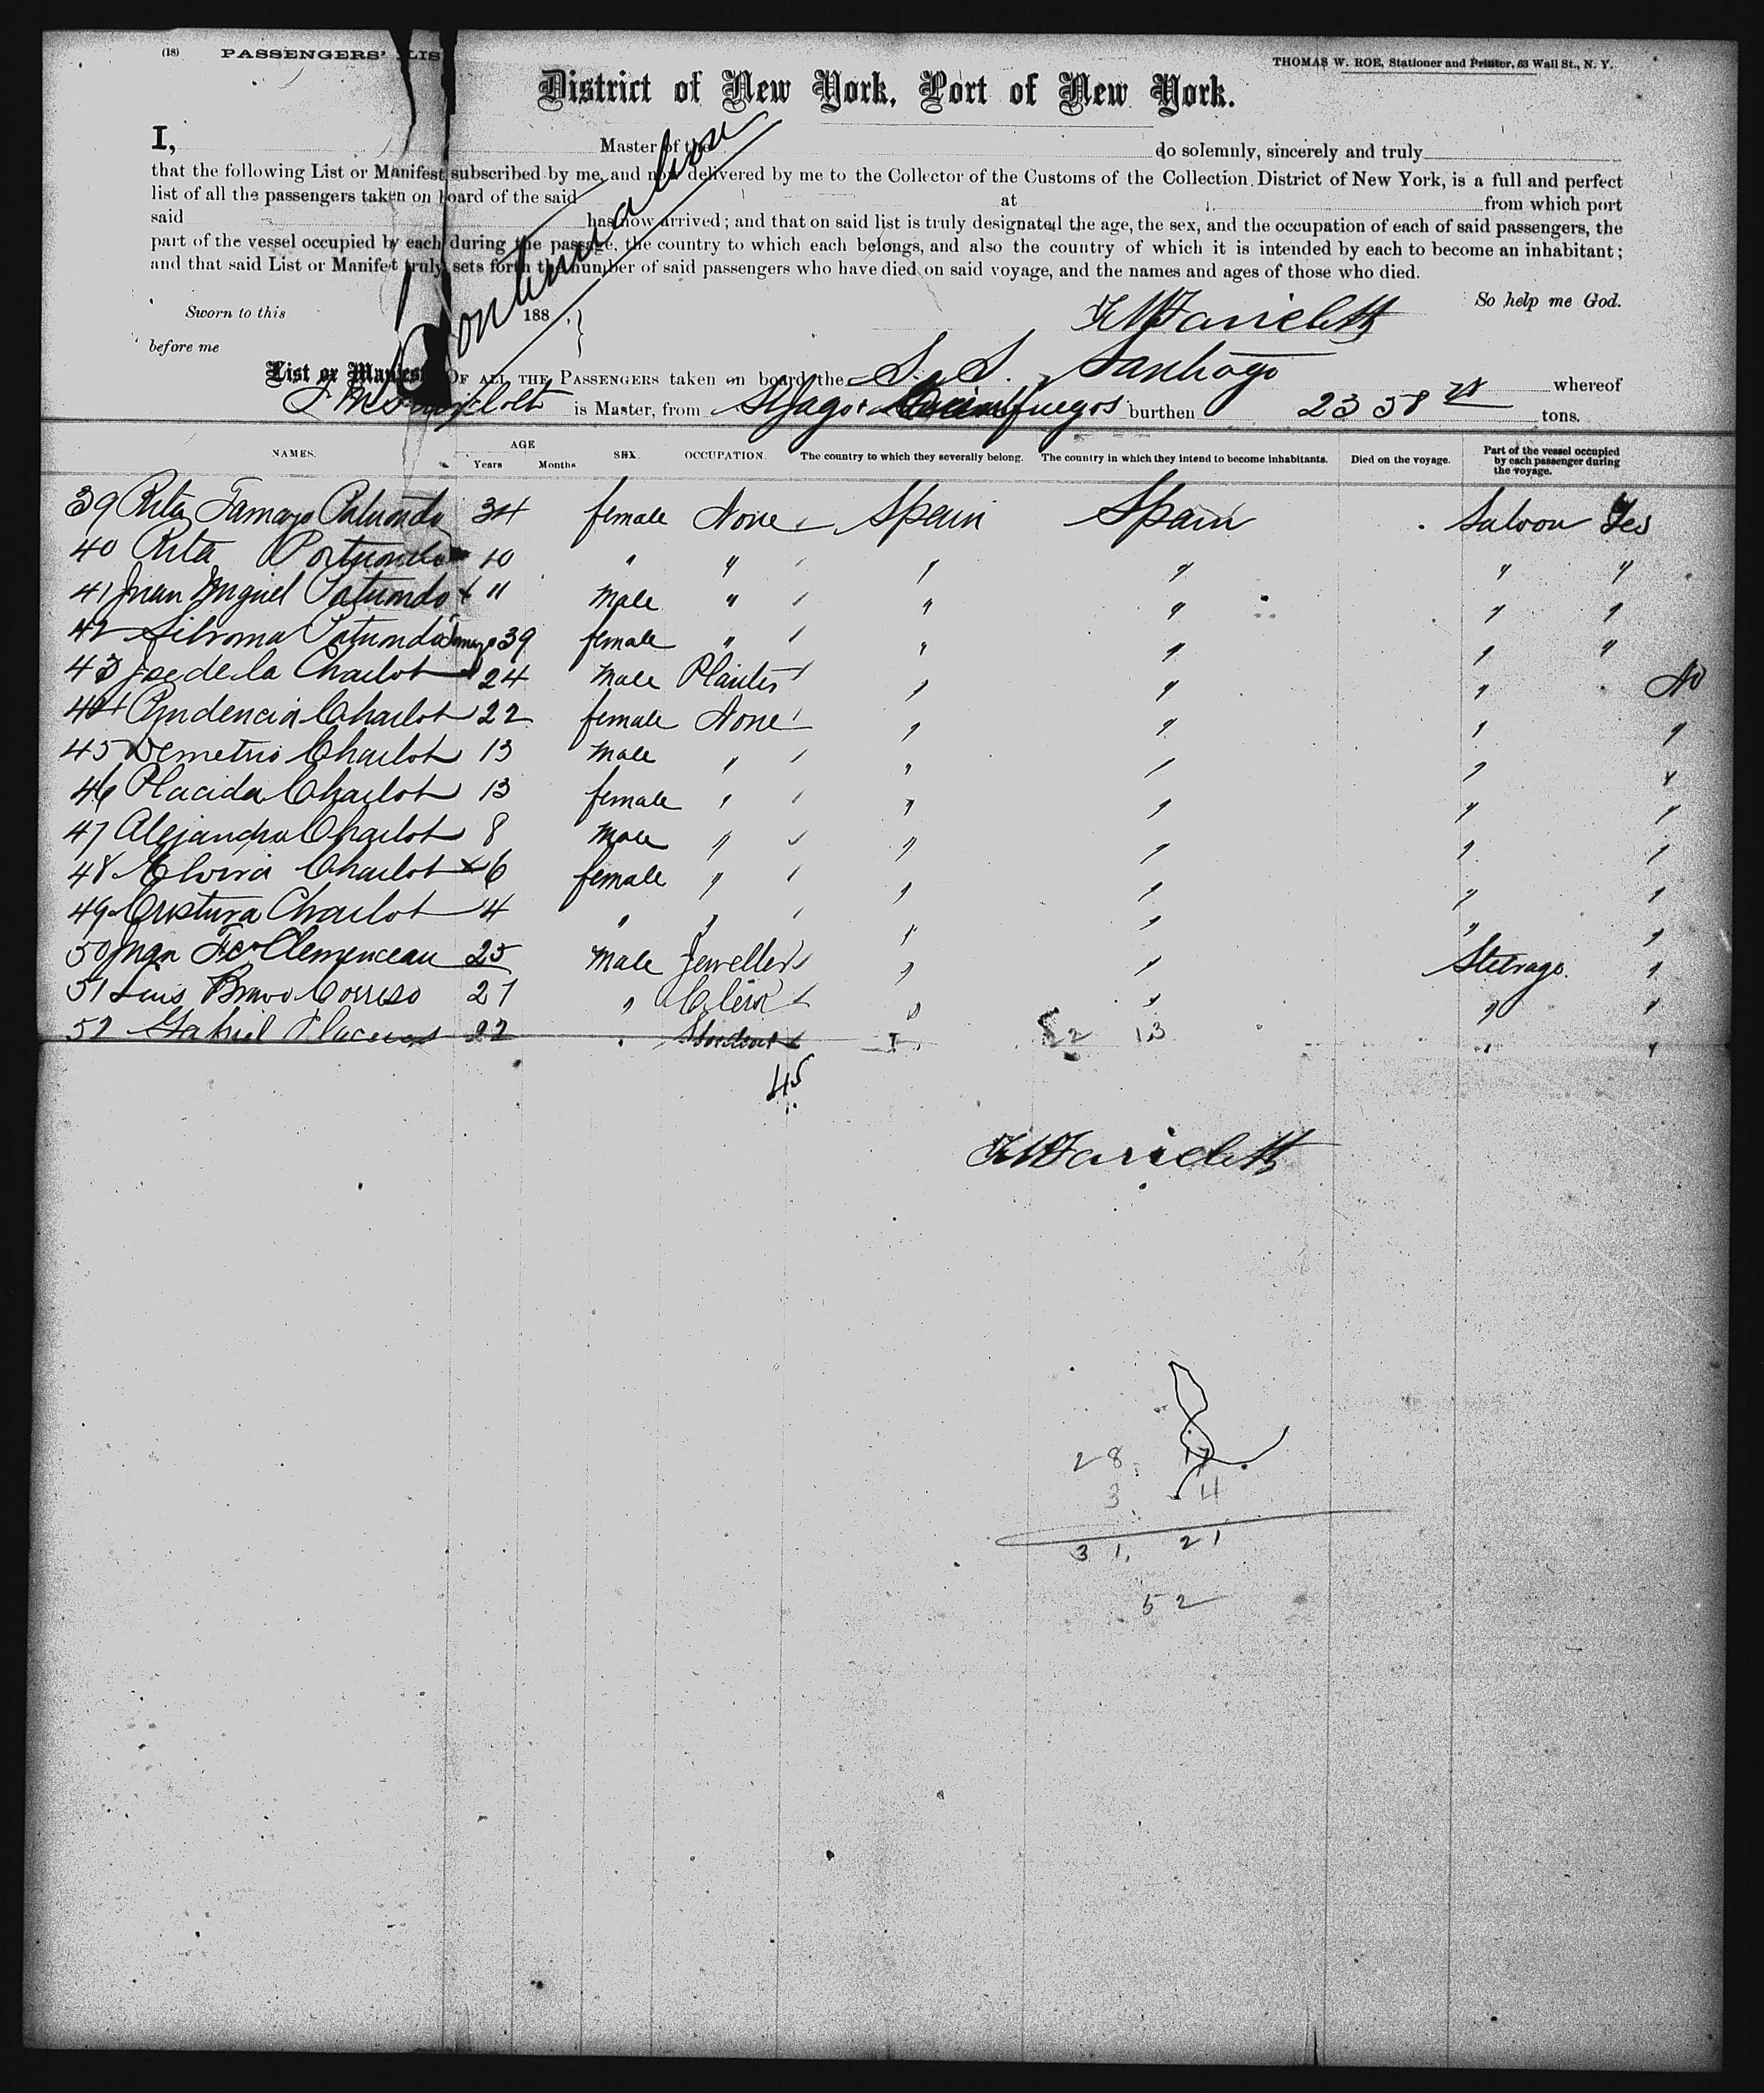 (18) PASSENGERS' LIS
THOMAS W. ROE, Stationer and Printer, 63 Wall St., N. Y.
District of New York, Port of New York.
I, Master of the do solemnly, sincerely and truly
that the following List or Manifest subscribed by me, and now delivered by me to the Collector of the Customs of the Collection District of New York, is a full and perfect
list of all the passengers taken on board of the said at from which port
said has now arrived; and that on said list is truly designated the age, the sex, and the occupation of each of said passengers, the
part of the vessel occupied by each during the passage, the country to which each belongs, and also the country of which it is intended by each to become an inhabitant;
and that said List or Manifet truly sets forth the number of said passengers who have died on said voyage, and the names and ages of those who died.
Continuation
So help me God.
Sworn to this 188
before me
List or Manifest OF ALL THE PASSENGERS taken on board the S. S. Santiago whereof
is Master, from Stjago & Cienfuegos burthen 2358 tons.
NAMES. AGE Years Months SEX. OCCUPATION. The country to which they severally belong. The country in which they intend to become inhabitants. Died on the voyage. Part of the vessel occupied by each passenger during the voyage.
39 Rita Tamayo Portuondo 34 female None Spain Spain Saloon Yes
40 Rita Portuondo 10 " " " " " "
41 Juan Miguel Portuondo " Male " " " " "
42 Portuondo Tamayo 39 female " " " " "
43 Jose de la Charlot 24 Male Planter " " " No
44 Prudencia Charlot 22 female None " " " "
45 Demetrio Charlot 13 Male " " " " "
46 Placida Charlot 13 female " " " " "
47 Alejandro Charlot 8 Male " " " " "
48 Elvira Charlot 6 female " " " " "
49 Charlot 4 " " " " " "
50 Juan Fco Clemenceau 25 Male Jeweller " " Steerage "
51 Luis Bravo Correso 27 " Clerk " " " "
52 Gabriel 22 " Student " "
52 13
45
28 17
3 4
31 21
52